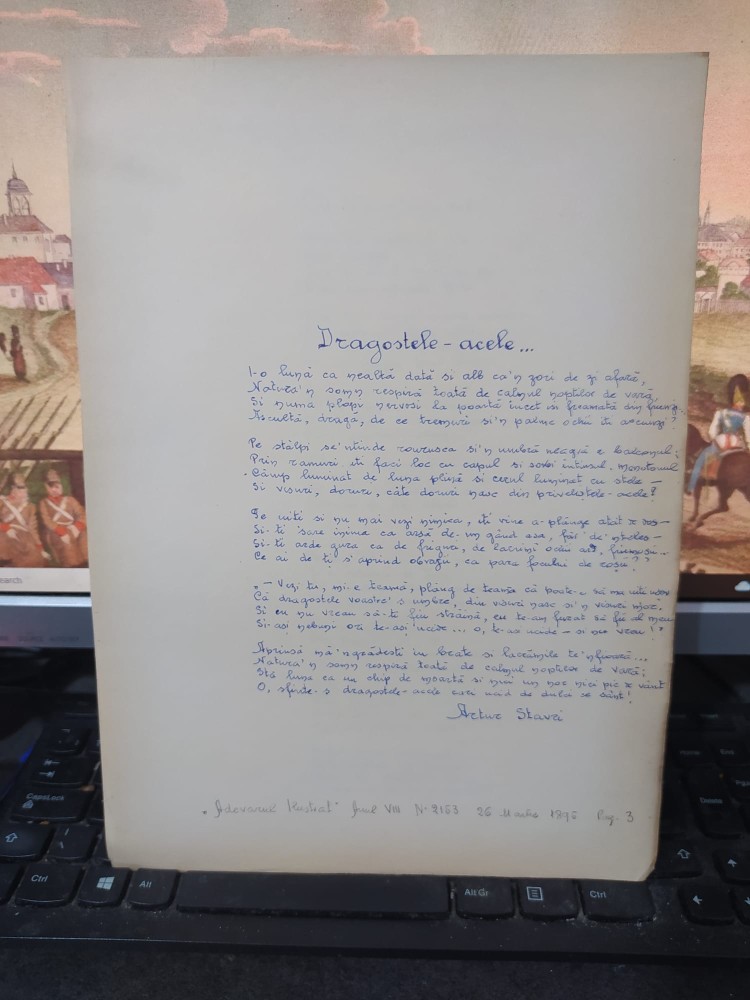 Dragostele-acele...
I-o lună ca nealtă dată si alb ca'n zori de zi afară,
Natura'n somn respiră toată de calmul nopților de vară,
Si numa plopi nervosi la poartă incet isi freamătă din
Ascultă, dragă, de ce tremuri si'n palme ochii ți ascunzi?
Pe stâlpi se'ntinde rourusca si'n umbră neagră e balconul;
Prin ramuri iti faci loc cu capul si sorbi intinsul, monotonul
Câmp luminat de luna plină si cerul luminat cu stele —
Si visuri, doruri, câte doruri nasc din privelistele-acele?
Te uiti si nu mai vezi nimica, iti vine a-plânge atât
Si-ti sare inima ca arsă de-un gând asa, făr' de'nteles —
Si-ti arde gura ca de friguri, de lacrimi ochii
Ce ai de ti s'aprind obrajii, ca para focului de rosii?
— Vezi tu, mi-e teamă, plâng de teama că poate
Că dragostele voastre's umbre, din visuri nasc si'n visuri mor.
Si eu nu vreau să-ti fiu străină, eu te-am furat să fii al meu
Si-asi nebuni ori te-asi ucide... o, te-asi ucide — si nu vreau!?
Aprinsă mă'ngrădesti in brate si lacrămile te'nfioară...
Natura'n somn respiră toată de calmul nopților de vară;
Stă luna ca un chip de moartă si nici un nor nici pic de vânt
O, sfinte-s dragostele-acele cari ucid de dulci ce sânt!
Artur Stavri
„Adevarul Ilustrat" Anul VIII N-2153 26 Martie 1895 Pag. 3
earch
CapsLock
Ctrl
Alt
Alt Gr
Ctrl
Home
Delete